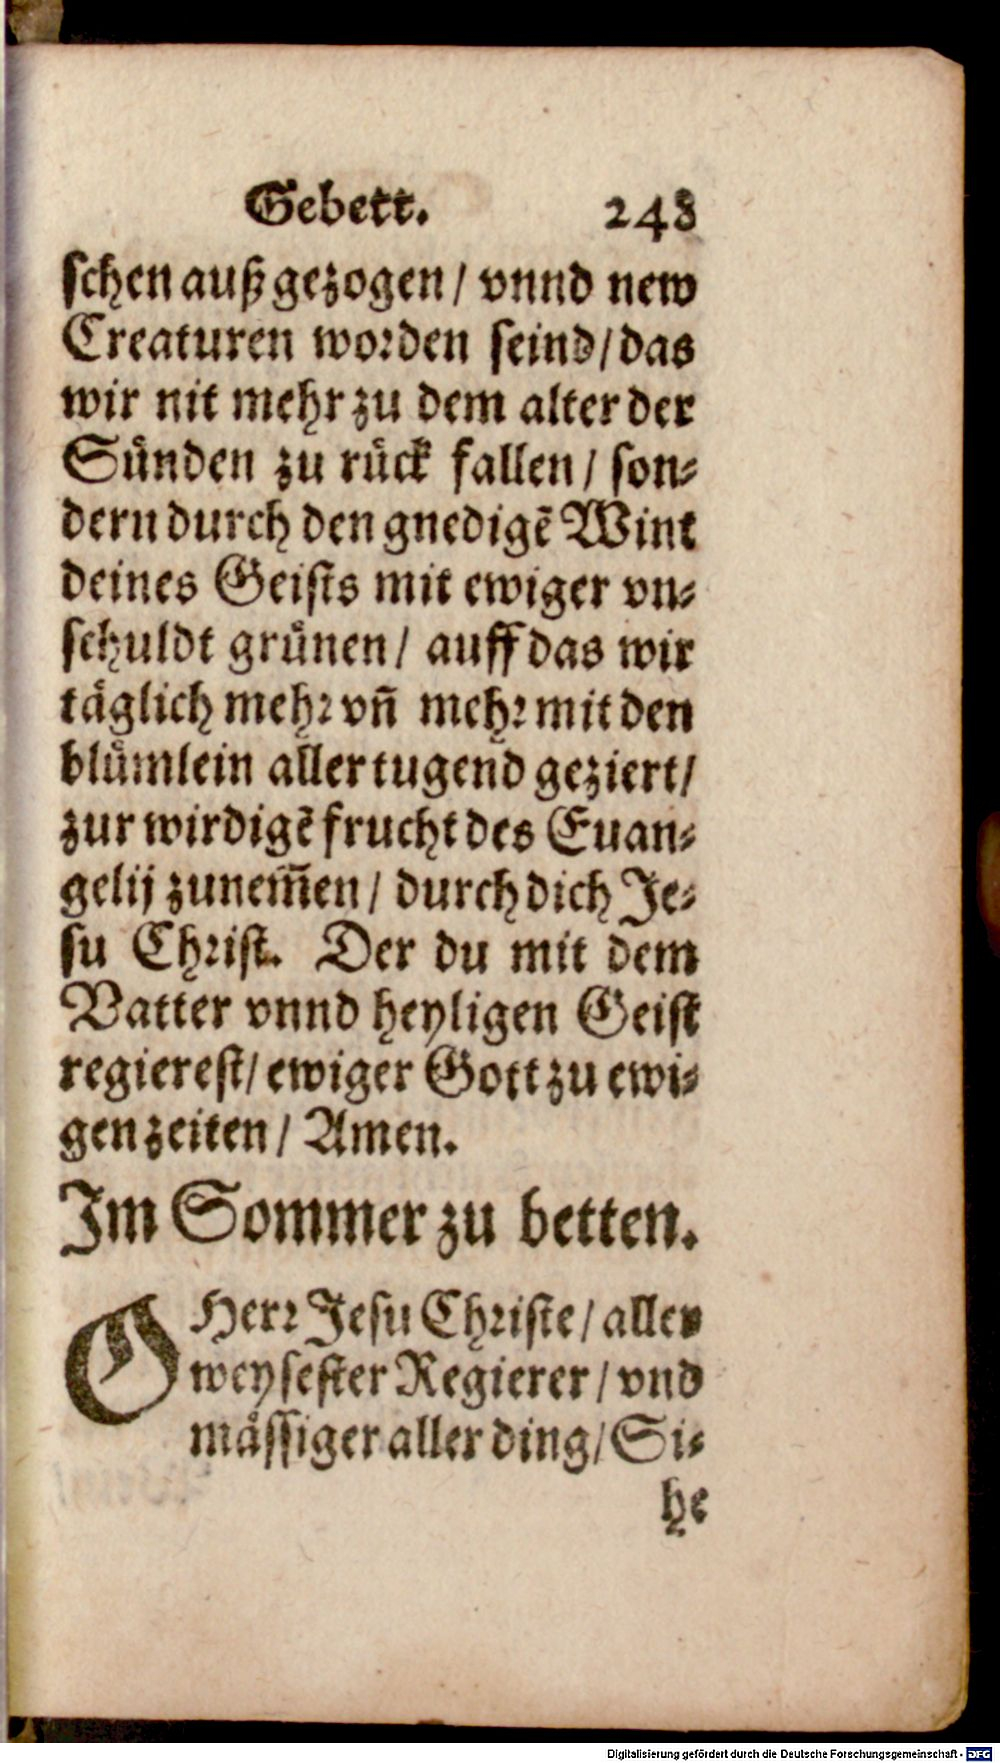 Gebett. 248
schen auß gezogen / vnnd new
Creaturen worden seind / das
wir nit mehr zu dem alter der
Sünden zu rück fallen / son-
dern durch den gnedigẽ Wint
deines Geists mit ewiger vn-
schuldt grünen / auff das wir
täglich mehr vñ mehr mit den
blümlein aller tugend geziert /
zur wirdigẽ frucht des Euan-
gelij zunem̃en / durch dich Je-
su Christ. Der du mit dem
Vatter vnnd heyligen Geist
regierest / ewiger Gott zu ewi-
gen zeiten / Amen.
Im Sommer zu betten.
O Herr Jesu Christe / aller
weysester Regierer / vnd
mässiger aller ding / Si-
he
Digitalisierung gefördert durch die Deutsche Forschungsgemeinschaft - DFG